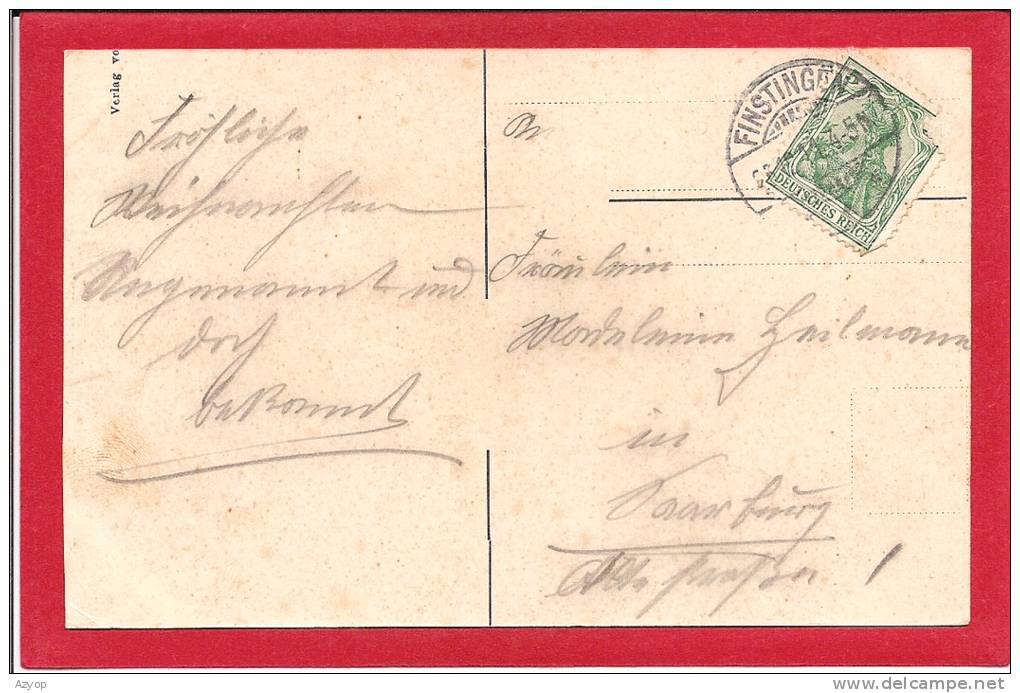 Verlag vo
Fröhliche
Weihnachten
Ungenannt und
doch
bekannt
FINSTINGEN
DEUTSCHES REICH
Fräulein
Madeleine Heilmann
in
Saarburg
Alte straße
Azyop
delcampe.net